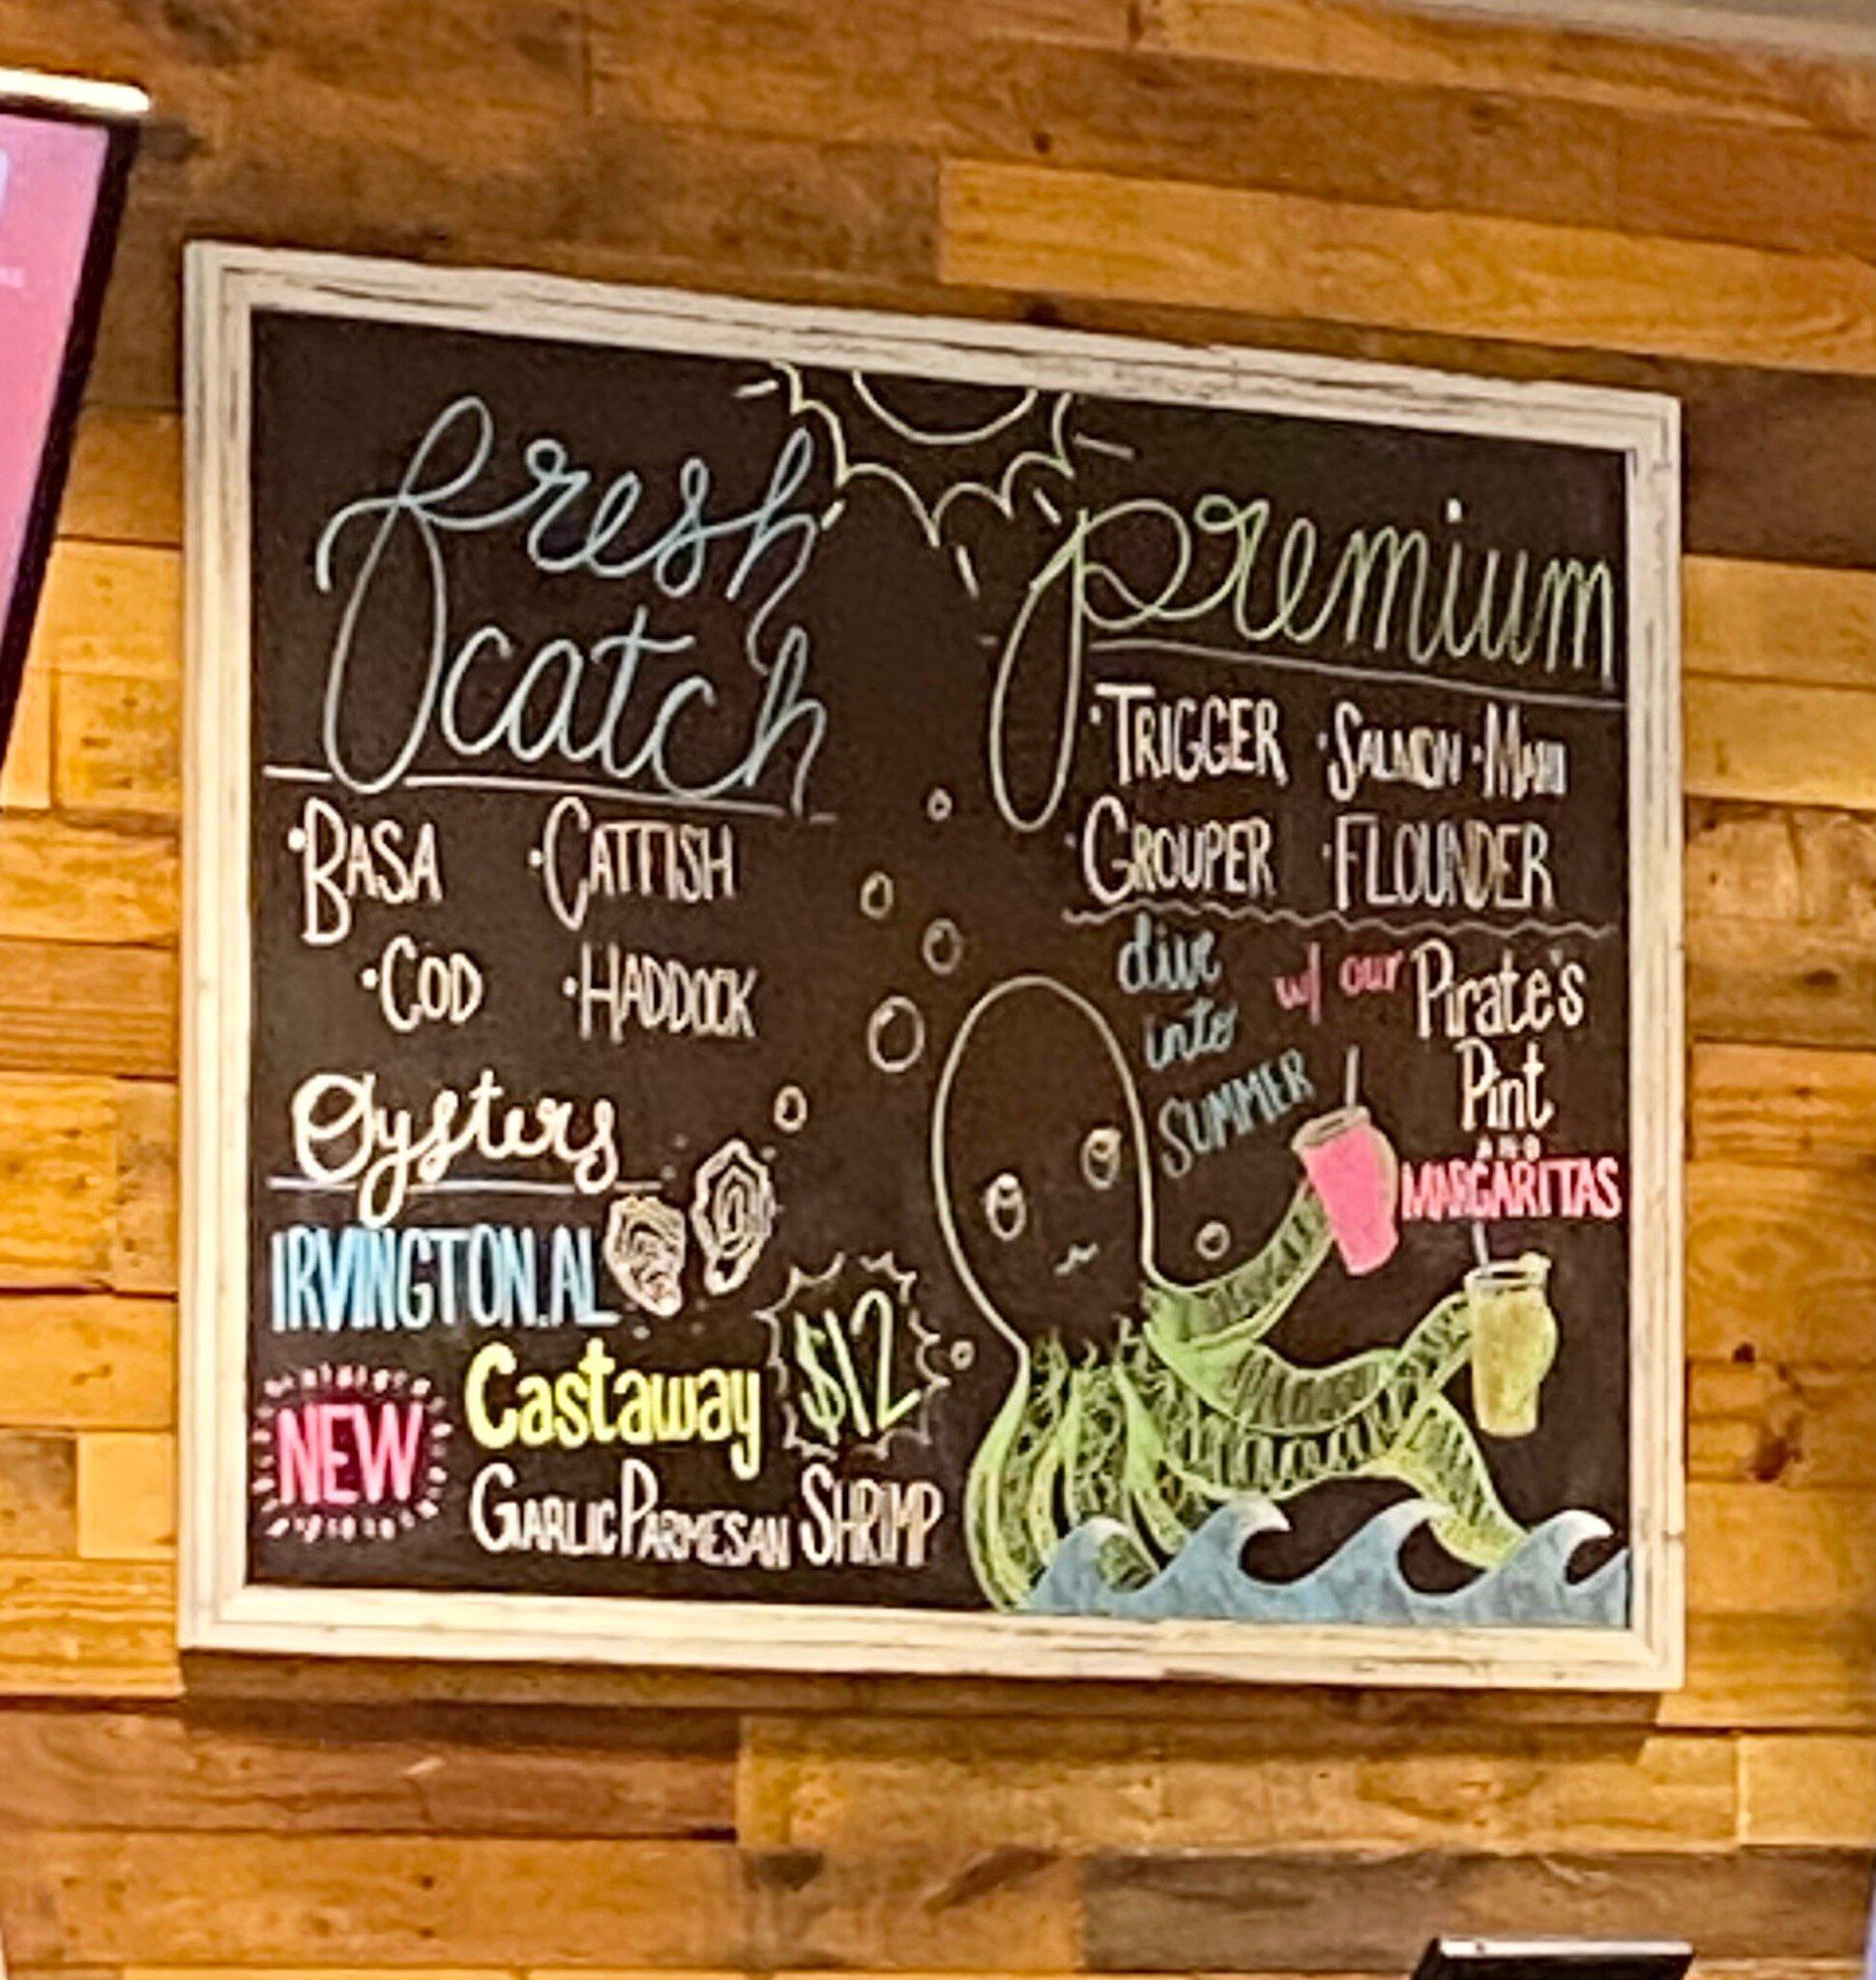 fresh
catch
•BASA •CATFISH
•COD •HADDOCK
Oysters
IRVINGTON.AL
NEW
Castaway $12
GARLIC PARMESAN SHRIMP
premium
•TRIGGER •SALMON •MAHI
•GROUPER •FLOUNDER
dive
into
SUMMER
w/ our Pirate's
Pint
AND
MARGARITAS